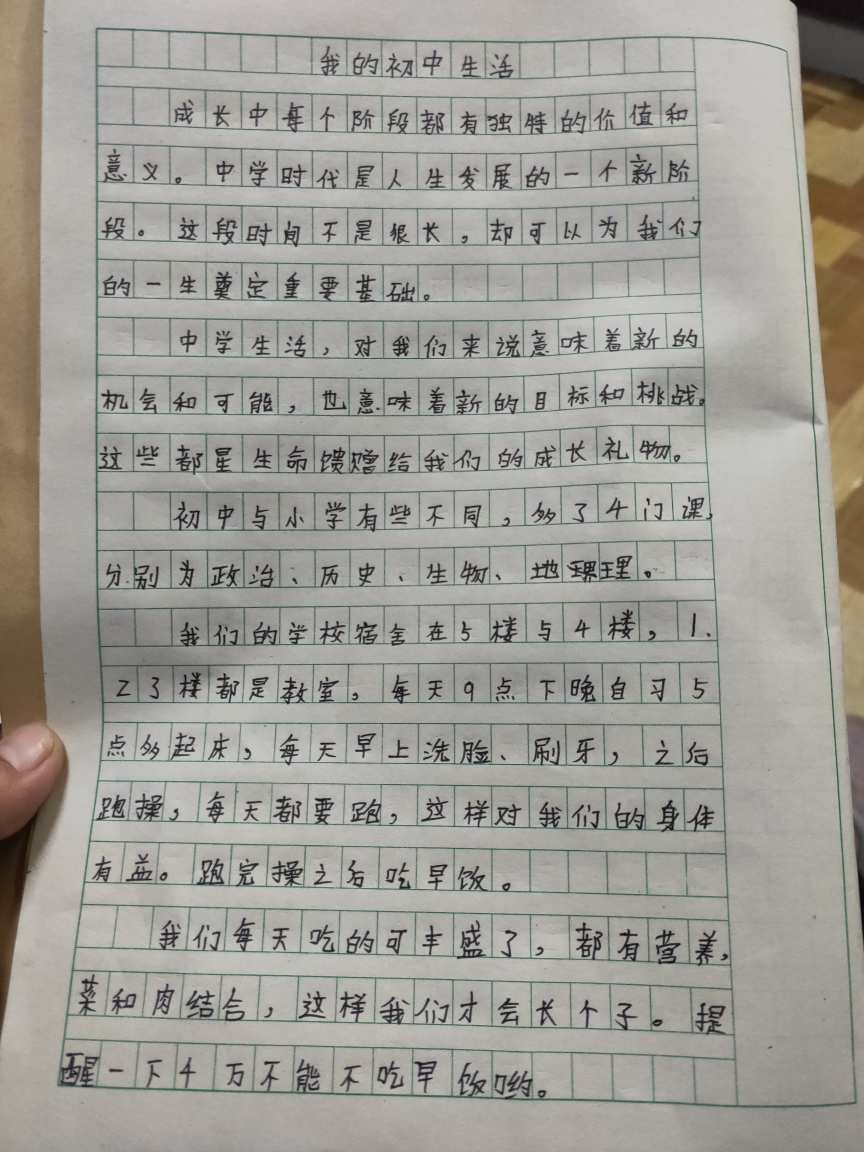 我的初中生活
成长中每个阶段都有独特的价值和
意义。中学时代是人生发展的一个新阶
段。这段时间不是很长，却可以为我们
的一生奠定重要基础。
中学生活，对我们来说意味着新的
机会和可能，也意味着新的目标和挑战。
这些都是生命馈赠给我们的成长礼物。
初中与小学有些不同，多了4门课，
分别为政治、历史、生物、地理。
我们的学校宿舍在5楼与4楼，1.
23楼都是教室，每天9点下晚自习5
点多起床，每天早上洗脸、刷牙，之后
跑操，每天都要跑，这样对我们的身体
有益。跑完操之后吃早饭。
我们每天吃的可丰盛了，都有营养，
菜和肉结合，这样我们才会长个子。提
醒一下4万不能不吃早饭哟。